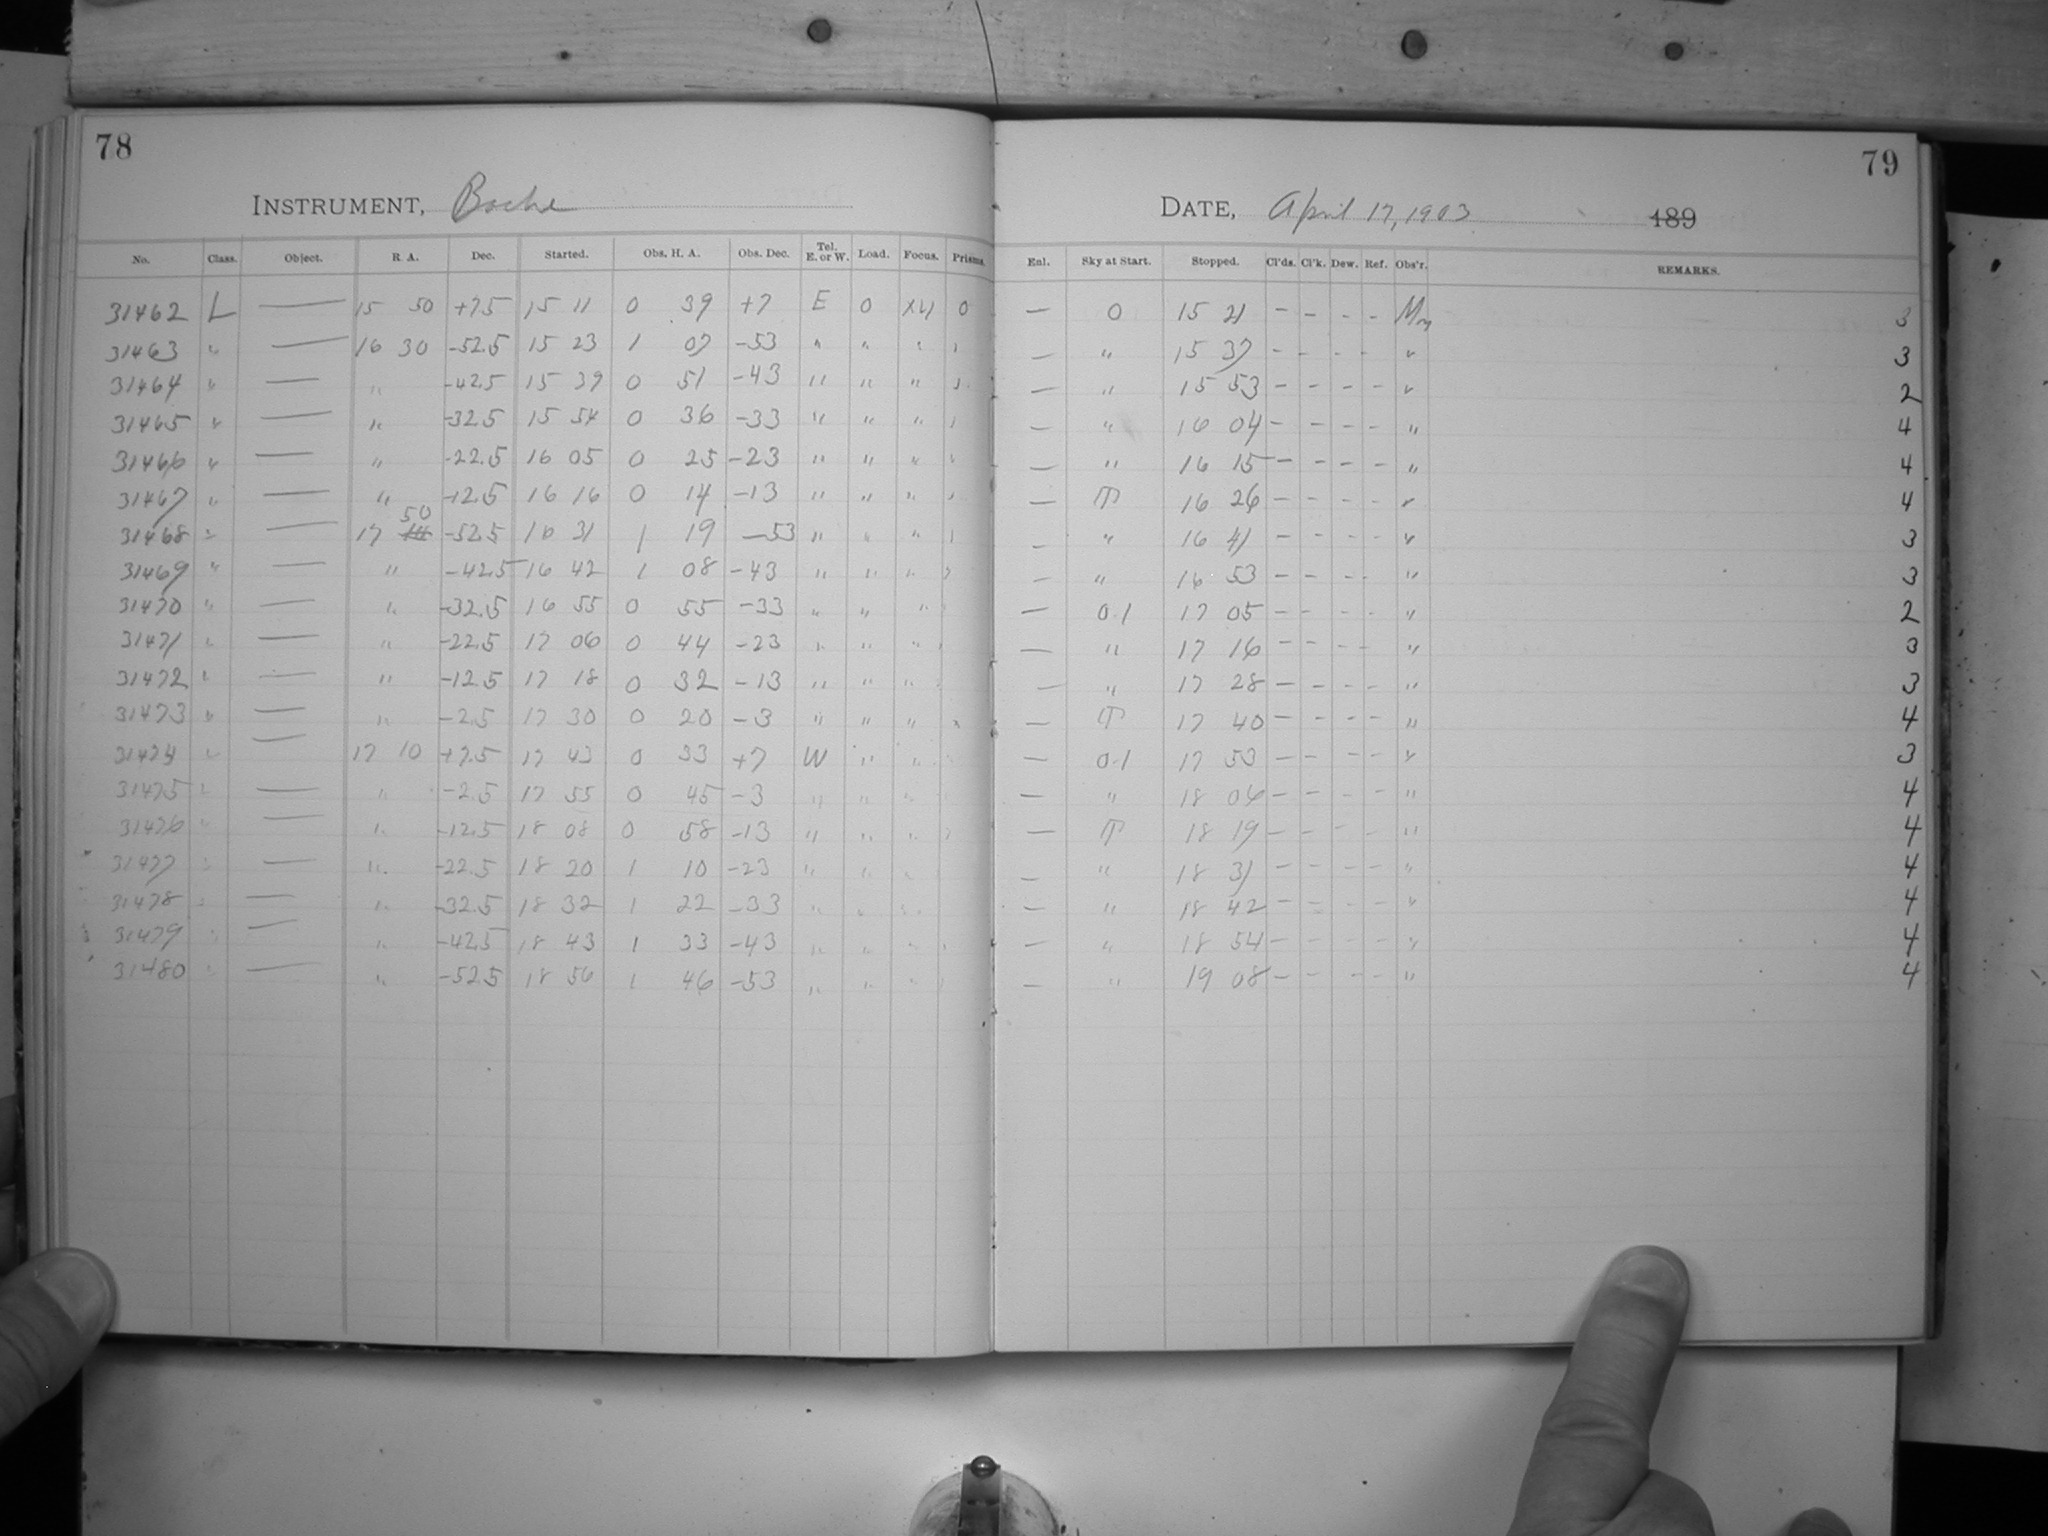 78
INSTRUMENT, Bache
No. Class. Object. R A. Dec. Started. Obs. H. A. Obs. Dec. Tel. E. or W. Load. Focus. Prisms.
31462 L — 15 50 +7.5 15 11 0 39 +7 E 0 0
31463 " — 16 30 -52.5 15 23 1 07 -53 " " " "
31464 " — " -42.5 15 39 0 51 -43 " " " "
31465 " — " -32.5 15 54 0 36 -33 " " " "
31466 " — " -22.5 16 05 0 25 -23 " " " "
31467 " — " -12.5 16 16 0 14 -13 " " " "
31468 " — 17 50 -52.5 16 31 1 19 -53 " " " "
31469 " — " -42.5 16 42 1 08 -43 " " " "
31470 " — " -32.5 16 55 0 55 -33 " " " "
31471 " — " -22.5 17 06 0 44 -23 " " " "
31472 " — " -12.5 17 18 0 32 -13 " " " "
31473 " — " -2.5 17 30 0 20 -3 " " " "
31474 " — 17 10 +7.5 17 43 0 33 +7 W " " "
31475 " — " -2.5 17 55 0 45 -3 " " " "
31476 " — " -12.5 18 08 0 58 -13 " " " "
31477 " — " -22.5 18 20 1 10 -23 " " " "
31478 " — " -32.5 18 32 1 22 -33 " " " "
31479 " — " -42.5 18 43 1 33 -43 " " " "
31480 " — " -52.5 18 56 1 46 -53 " " " "
79
DATE, April 17, 1903 189
Enl. Sky at Start. Stopped. Cl'ds. Cl'k. Dew. Ref. Obs'r. REMARKS.
— 0 15 21 - - - - 3
— " 15 37 - - - - " 3
— " 15 53 - - - - " 2
— " 16 04 - - - - " 4
— " 16 15 - - - - " 4
— 16 26 - - - - " 4
— " 16 41 - - - - " 3
— " 16 53 - - - - " 3
— 0.1 17 05 - - - - " 2
— " 17 16 - - - - " 3
— " 17 28 - - - - " 3
— 17 40 - - - - " 4
— 0.1 17 53 - - - - " 3
— " 18 06 - - - - " 4
— 18 19 - - - - " 4
— " 18 31 - - - - " 4
— " 18 42 - - - - " 4
— " 18 54 - - - - " 4
— " 19 08 - - - - " 4